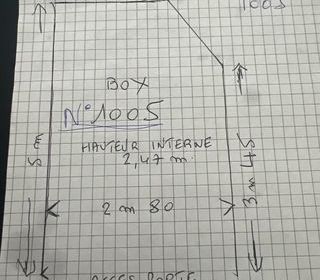 BOX
N°1005
HAUTEUR INTERNE
2,47 m
5 m
2 m 80
3 m 45
ACCES PORTE